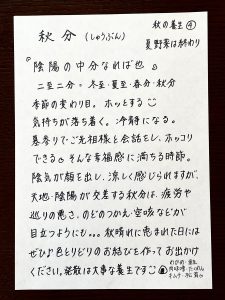 秋の養生④
夏野菜は終わり
秋分(しゅうぶん)
『陰陽の中分なれば也』
二至二分=冬至・夏至・春分・秋分
季節の変わり目。ホッとする
気持ちが落ち着く。冷静になる。
墓参りで、ご先祖様と会話をし、ホッコリ
できる。そんな幸福感に満ちる時節。
陰気が顔を出し、涼しく感じられますが、
天地・陰陽が交差する秋分は、疲労や
巡りの悪さ、のどのつかえ、空咳などが
目立つようにも。。。秋晴れに恵まれた日には
ぜひ色とりどりのお結びを作ってお出かけ
ください。発散は大事な養生です
わかめ・
肉味噌・たっぷり
キムチ・